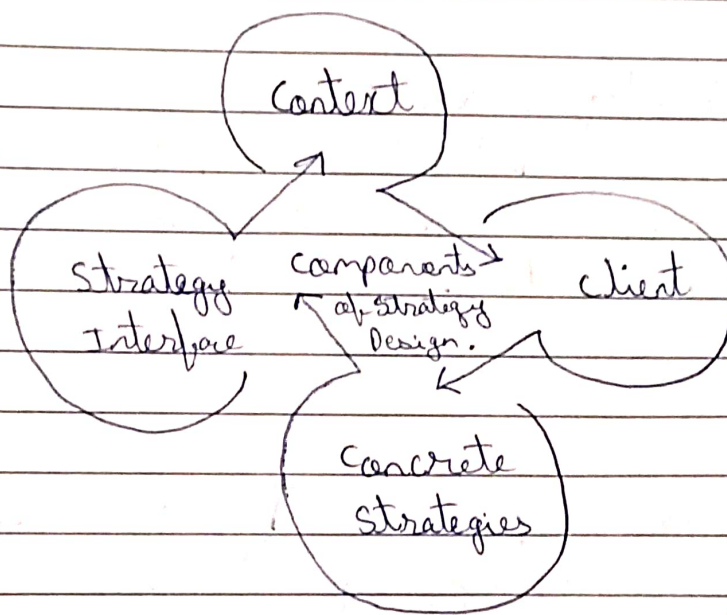 Context
Strategy
Interface
Components
of Strategy
Design.
Client
Concrete
Strategies